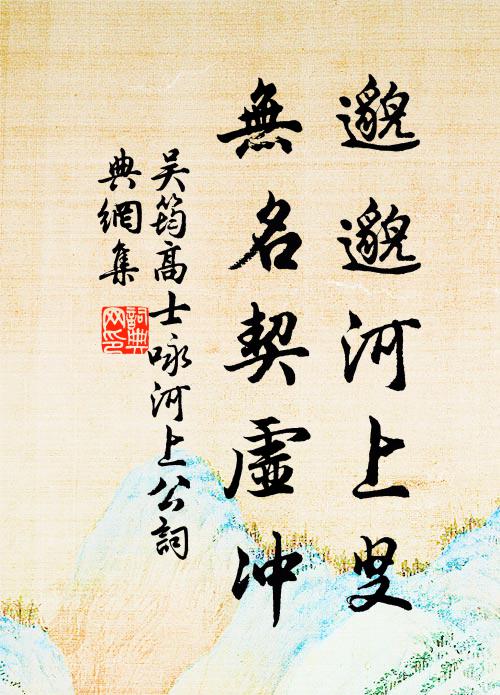 邈邈河上叟
無名契虛沖
吴筠高士咏河上公詞
典網集
詞典
网印